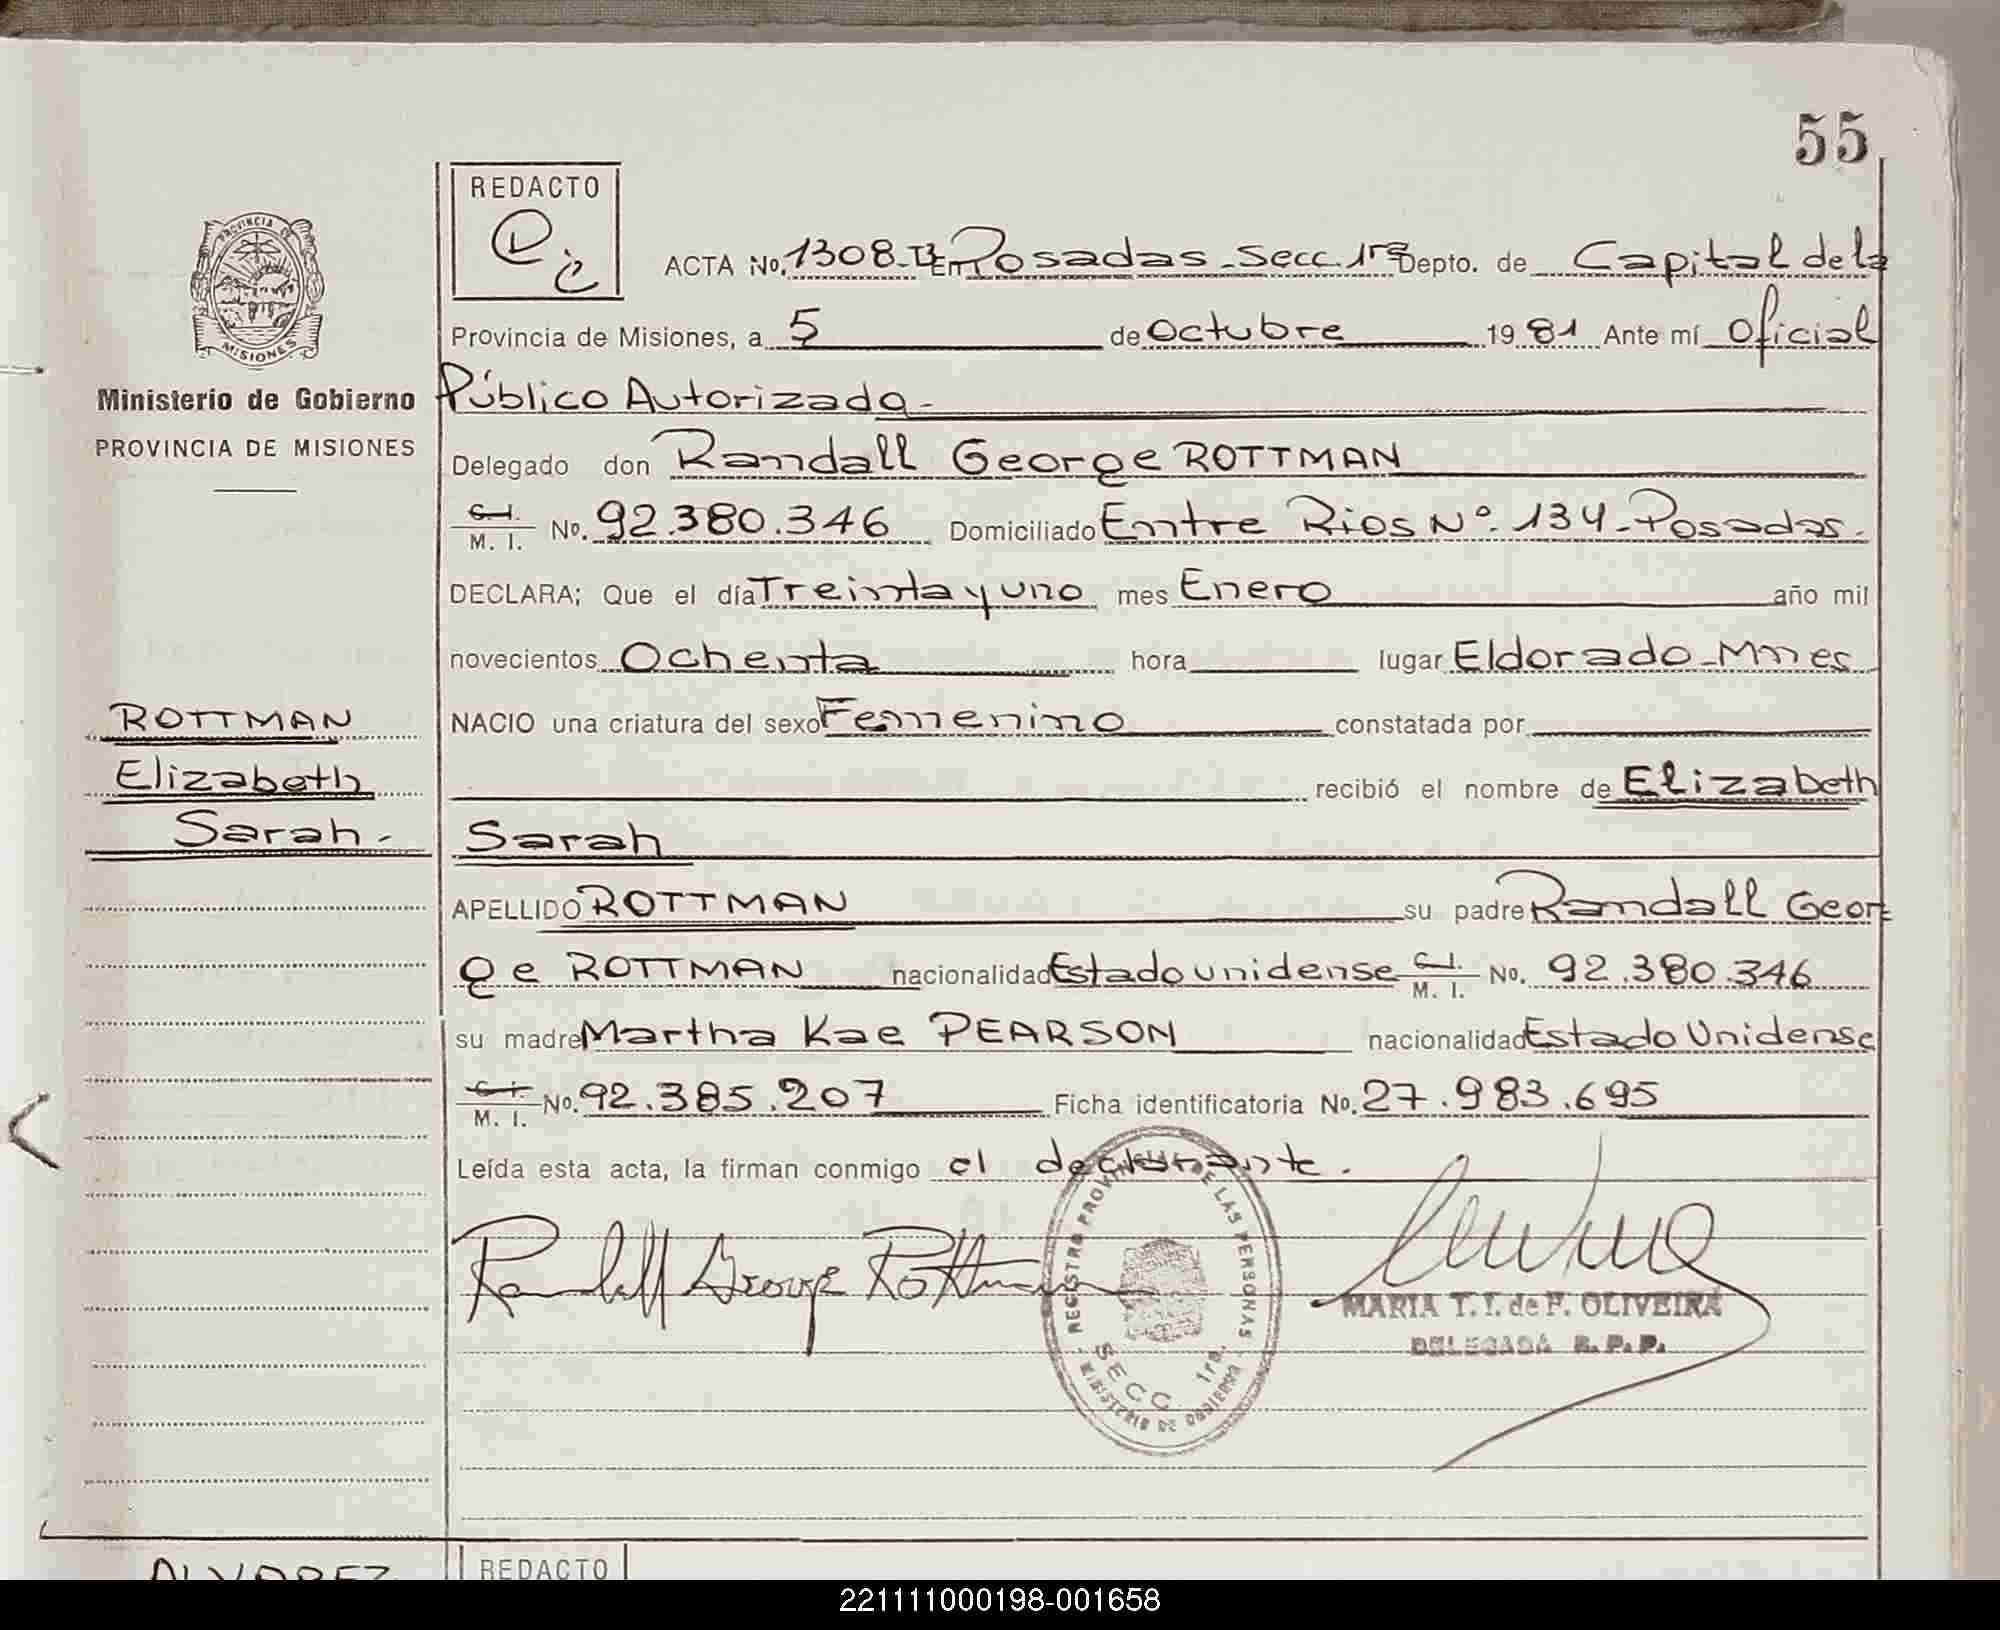 55
REDACTO
PROVINCIA DE
MISIONES
ACTA No. 1308-TB En Posadas - Secc. 1ra Depto. de Capital de la
Provincia de Misiones, a 5 de Octubre 1981 Ante mí Oficial
Ministerio de Gobierno
PROVINCIA DE MISIONES
Público Autorizado-
Delegado don Randall George ROTTMAN
C.I. M. I. No. 92.380.346 Domiciliado Entre Rios Nº. 134 - Posadas.
DECLARA; Que el día Treinta y uno mes Enero año mil
novecientos Ochenta hora lugar Eldorado - Mnes
NACIO una criatura del sexo Femenino constatada por
ROTTMAN
Elizabeth
Sarah.-
recibió el nombre de Elizabeth
Sarah
APELLIDO ROTTMAN su padre Randall Geor
ge ROTTMAN nacionalidad Estadounidense C.I. M. I. No. 92.380.346
su madre Martha Kae PEARSON nacionalidad Estado Unidense
C.I. M. I. No. 92.385.207 Ficha identificatoria No. 27.983.695
Leída esta acta, la firman conmigo el declarante.
Randall George Rottman
REGISTRO PROVINCIAL DE LAS PERSONAS
SECC 1ra.
MINISTERIO DE GOBIERNO
MARIA T. I. de F. OLIVEIRA
DELEGADA R. P. P.
ALVAREZ
REDACTO
221111000198-001658